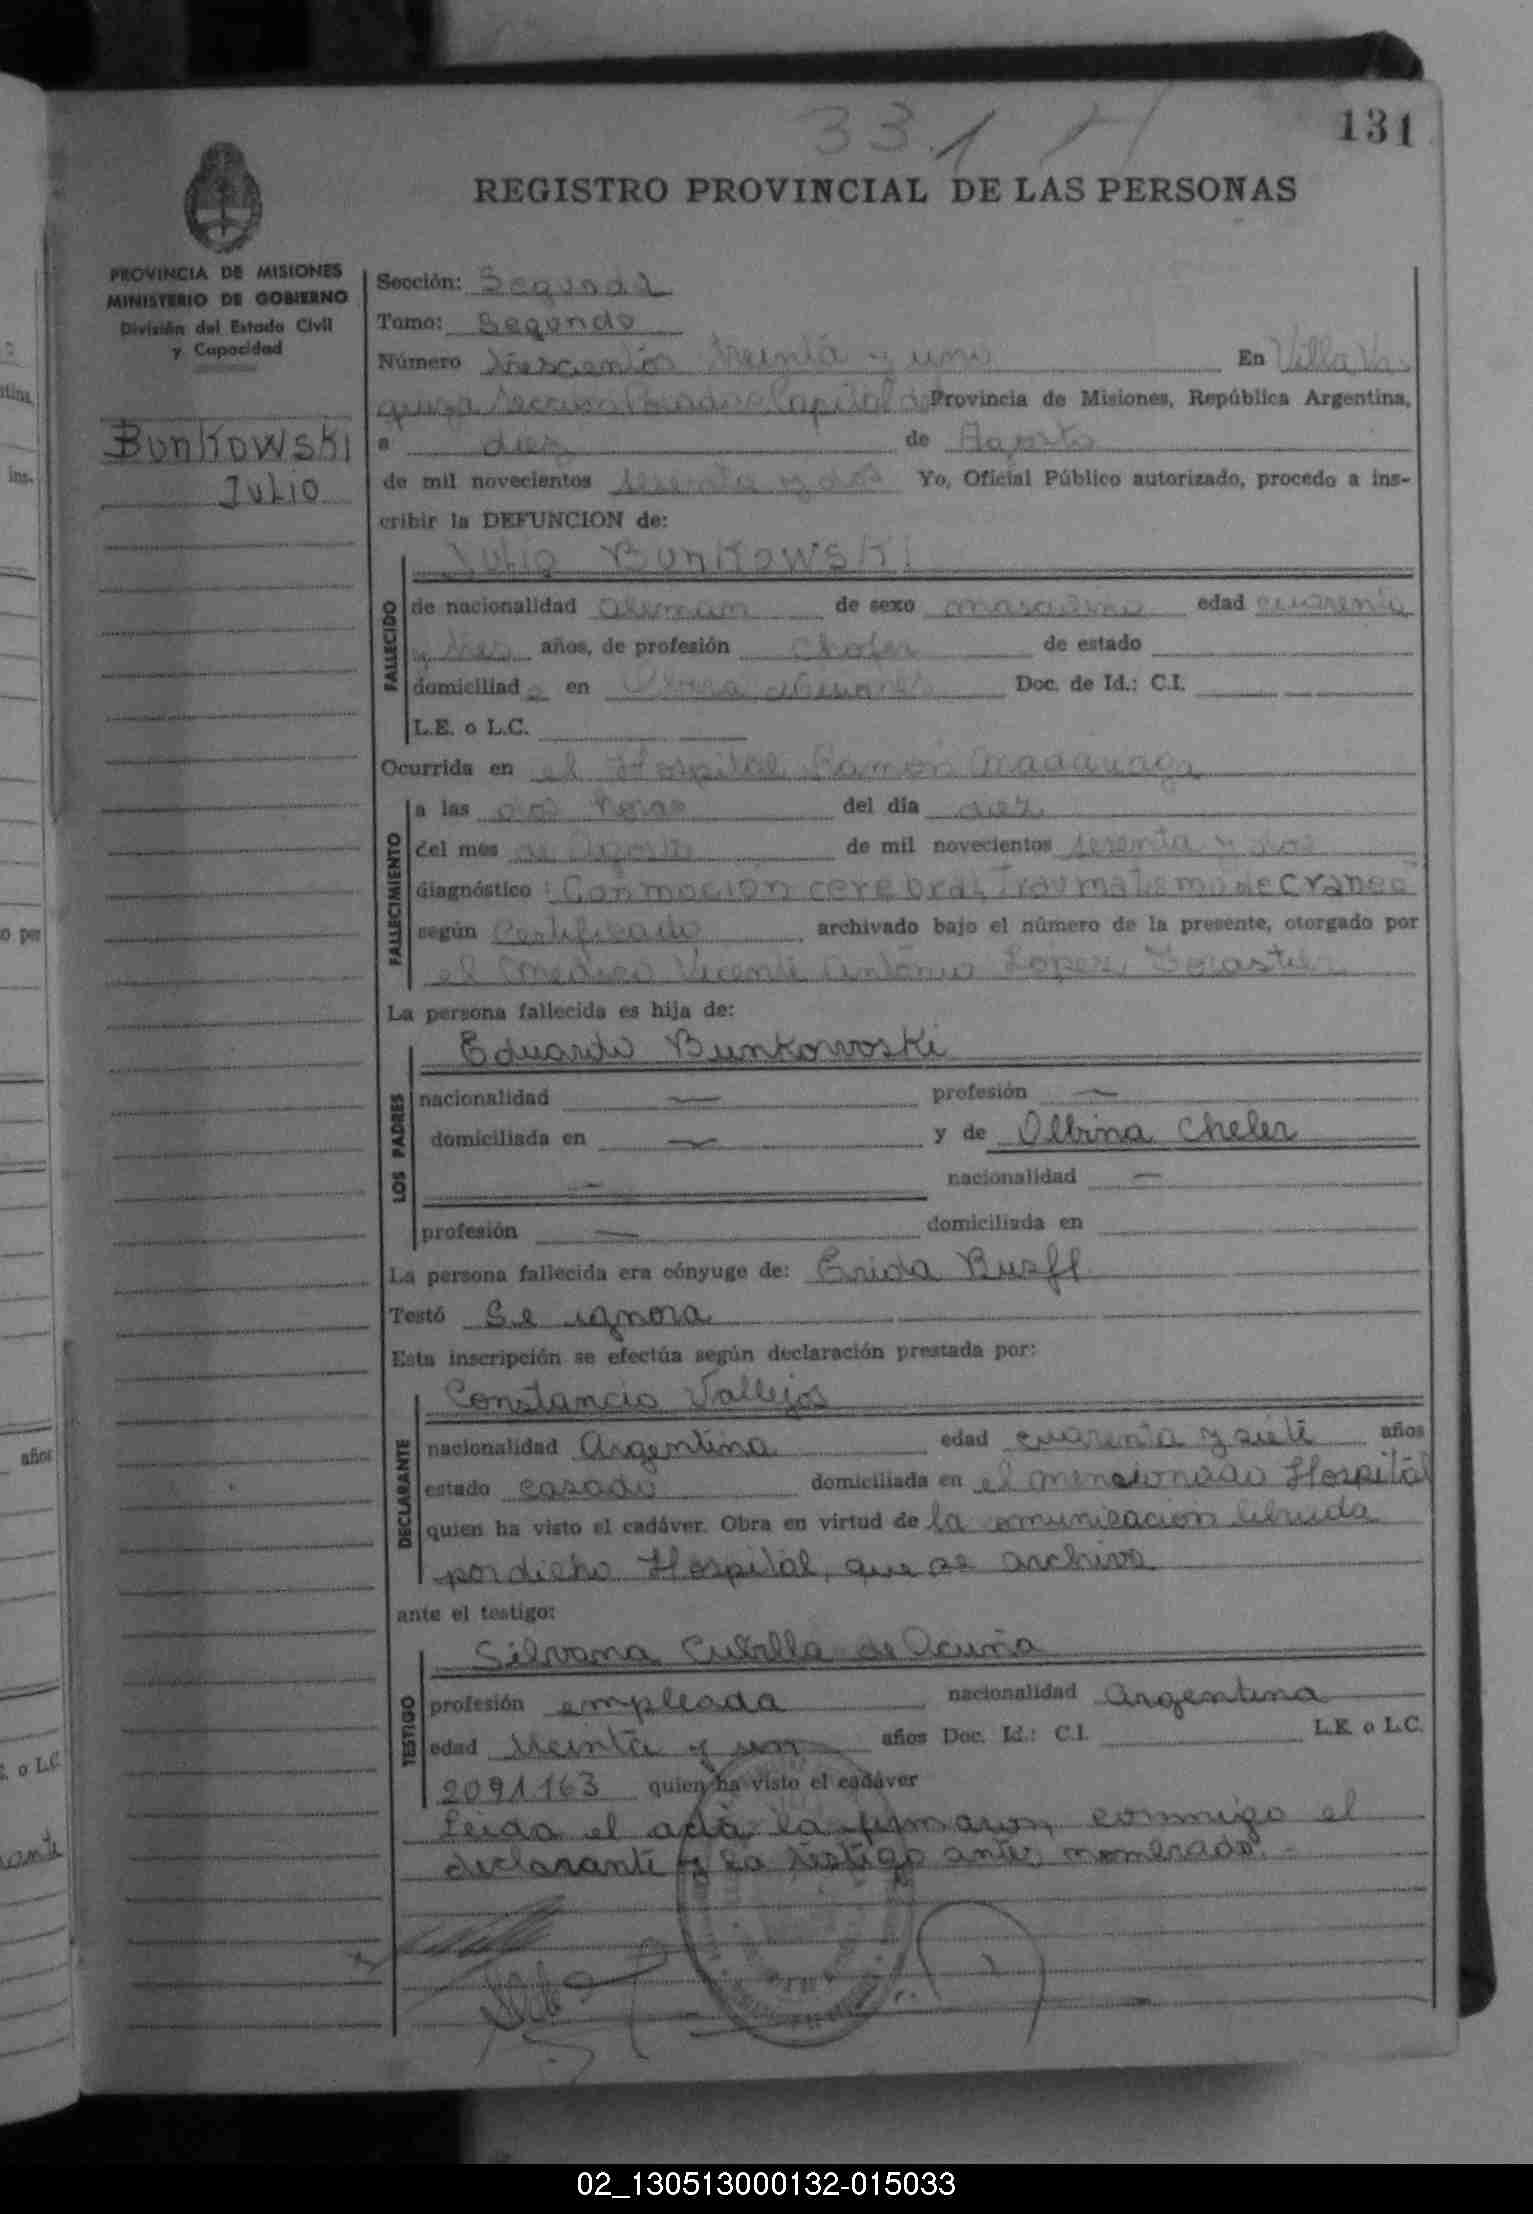 33.1
131
REGISTRO PROVINCIAL DE LAS PERSONAS
PROVINCIA DE MISIONES
MINISTERIO DE GOBIERNO
División del Estado Civil
y Capacidad
BunKowsKi
Julio
Sección: Segunda
Tomo: Segundo
Número trescientos treinta y uno En Villa Ur-
quiza Seccion Posadas Capital de Provincia de Misiones, República Argentina,
a diez de Agosto
de mil novecientos sesenta y dos Yo, Oficial Público autorizado, procedo a ins-
cribir la DEFUNCION de:
Julio BunKowsKi
FALLECIDO
de nacionalidad aleman de sexo masculino edad cuarenta
y tres años, de profesión chofer de estado
domiciliado en Obera Misiones Doc. de Id.: C.I.
L.E. o L.C.
Ocurrida en el Hospital Ramón Madariaga
FALLECIMIENTO
a las dos horas del día diez
del mes de Agosto de mil novecientos sesenta y dos
diagnóstico: Conmoción cerebral, Traumatismo de craneo
según Certificado archivado bajo el número de la presente, otorgado por
el médico Vicente Antonio Lopez
La persona fallecida es hija de:
LOS PADRES
Eduardo Bunkowoski
nacionalidad — profesión —
domiciliada en — y de Olbina Cheler
— nacionalidad —
profesión — domiciliada en
La persona fallecida era cónyuge de: Erida
Testó Se ignora
Esta inscripción se efectúa según declaración prestada por:
DECLARANTE
Constancio Vallejos
nacionalidad Argentina edad cuarenta y siete años
estado casado domiciliada en el mencionado Hospital
quien ha visto el cadáver. Obra en virtud de la comunicación librada
por dicho Hospital, que se archiva
ante el testigo:
TESTIGO
Silvana Cubilla de Acuña
profesión empleada nacionalidad Argentina
edad treinta y un años Doc. Id.: C.I. L.E. o L.C.
2091163 quien ha visto el cadáver
Leida el acta la firmaron conmigo el
declarante y la testigo antes nombrado.-
02_130513000132-015033